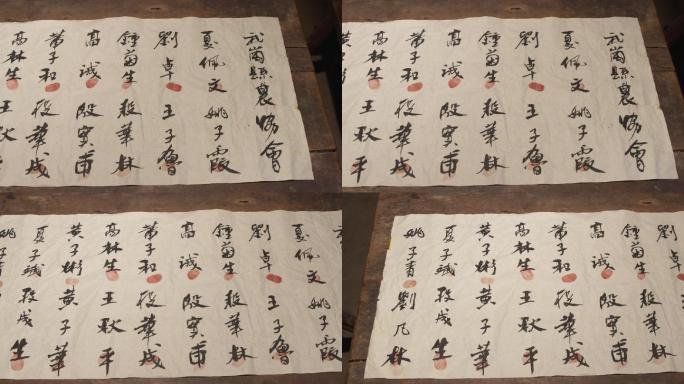 武崗縣農協會
夏佩文 姚子霞
劉卓 王子魯
鍾菊生 殷華林
高誠 殷實甫
常子和 段華成
高林生 王耿平
武崗縣農協會
夏佩文 姚子霞
劉卓 王子魯
鍾菊生 殷華林
高誠 殷實甫
常子和 段華成
高林生 王耿平
夏佩文 姚子霞
劉卓 王子魯
鍾菊生 殷華林
高誠 殷實甫
常子和 段華成
高林生 王耿平
黄子彬 黄子華
夏子斌 段成生
姚子青
劉卓 王子
鍾菊生 殷華林
高誠 殷實甫
常子和 段華成
高林生 王耿平
黄子彬 黄子華
夏子斌 段成生
姚子青 劉凡林